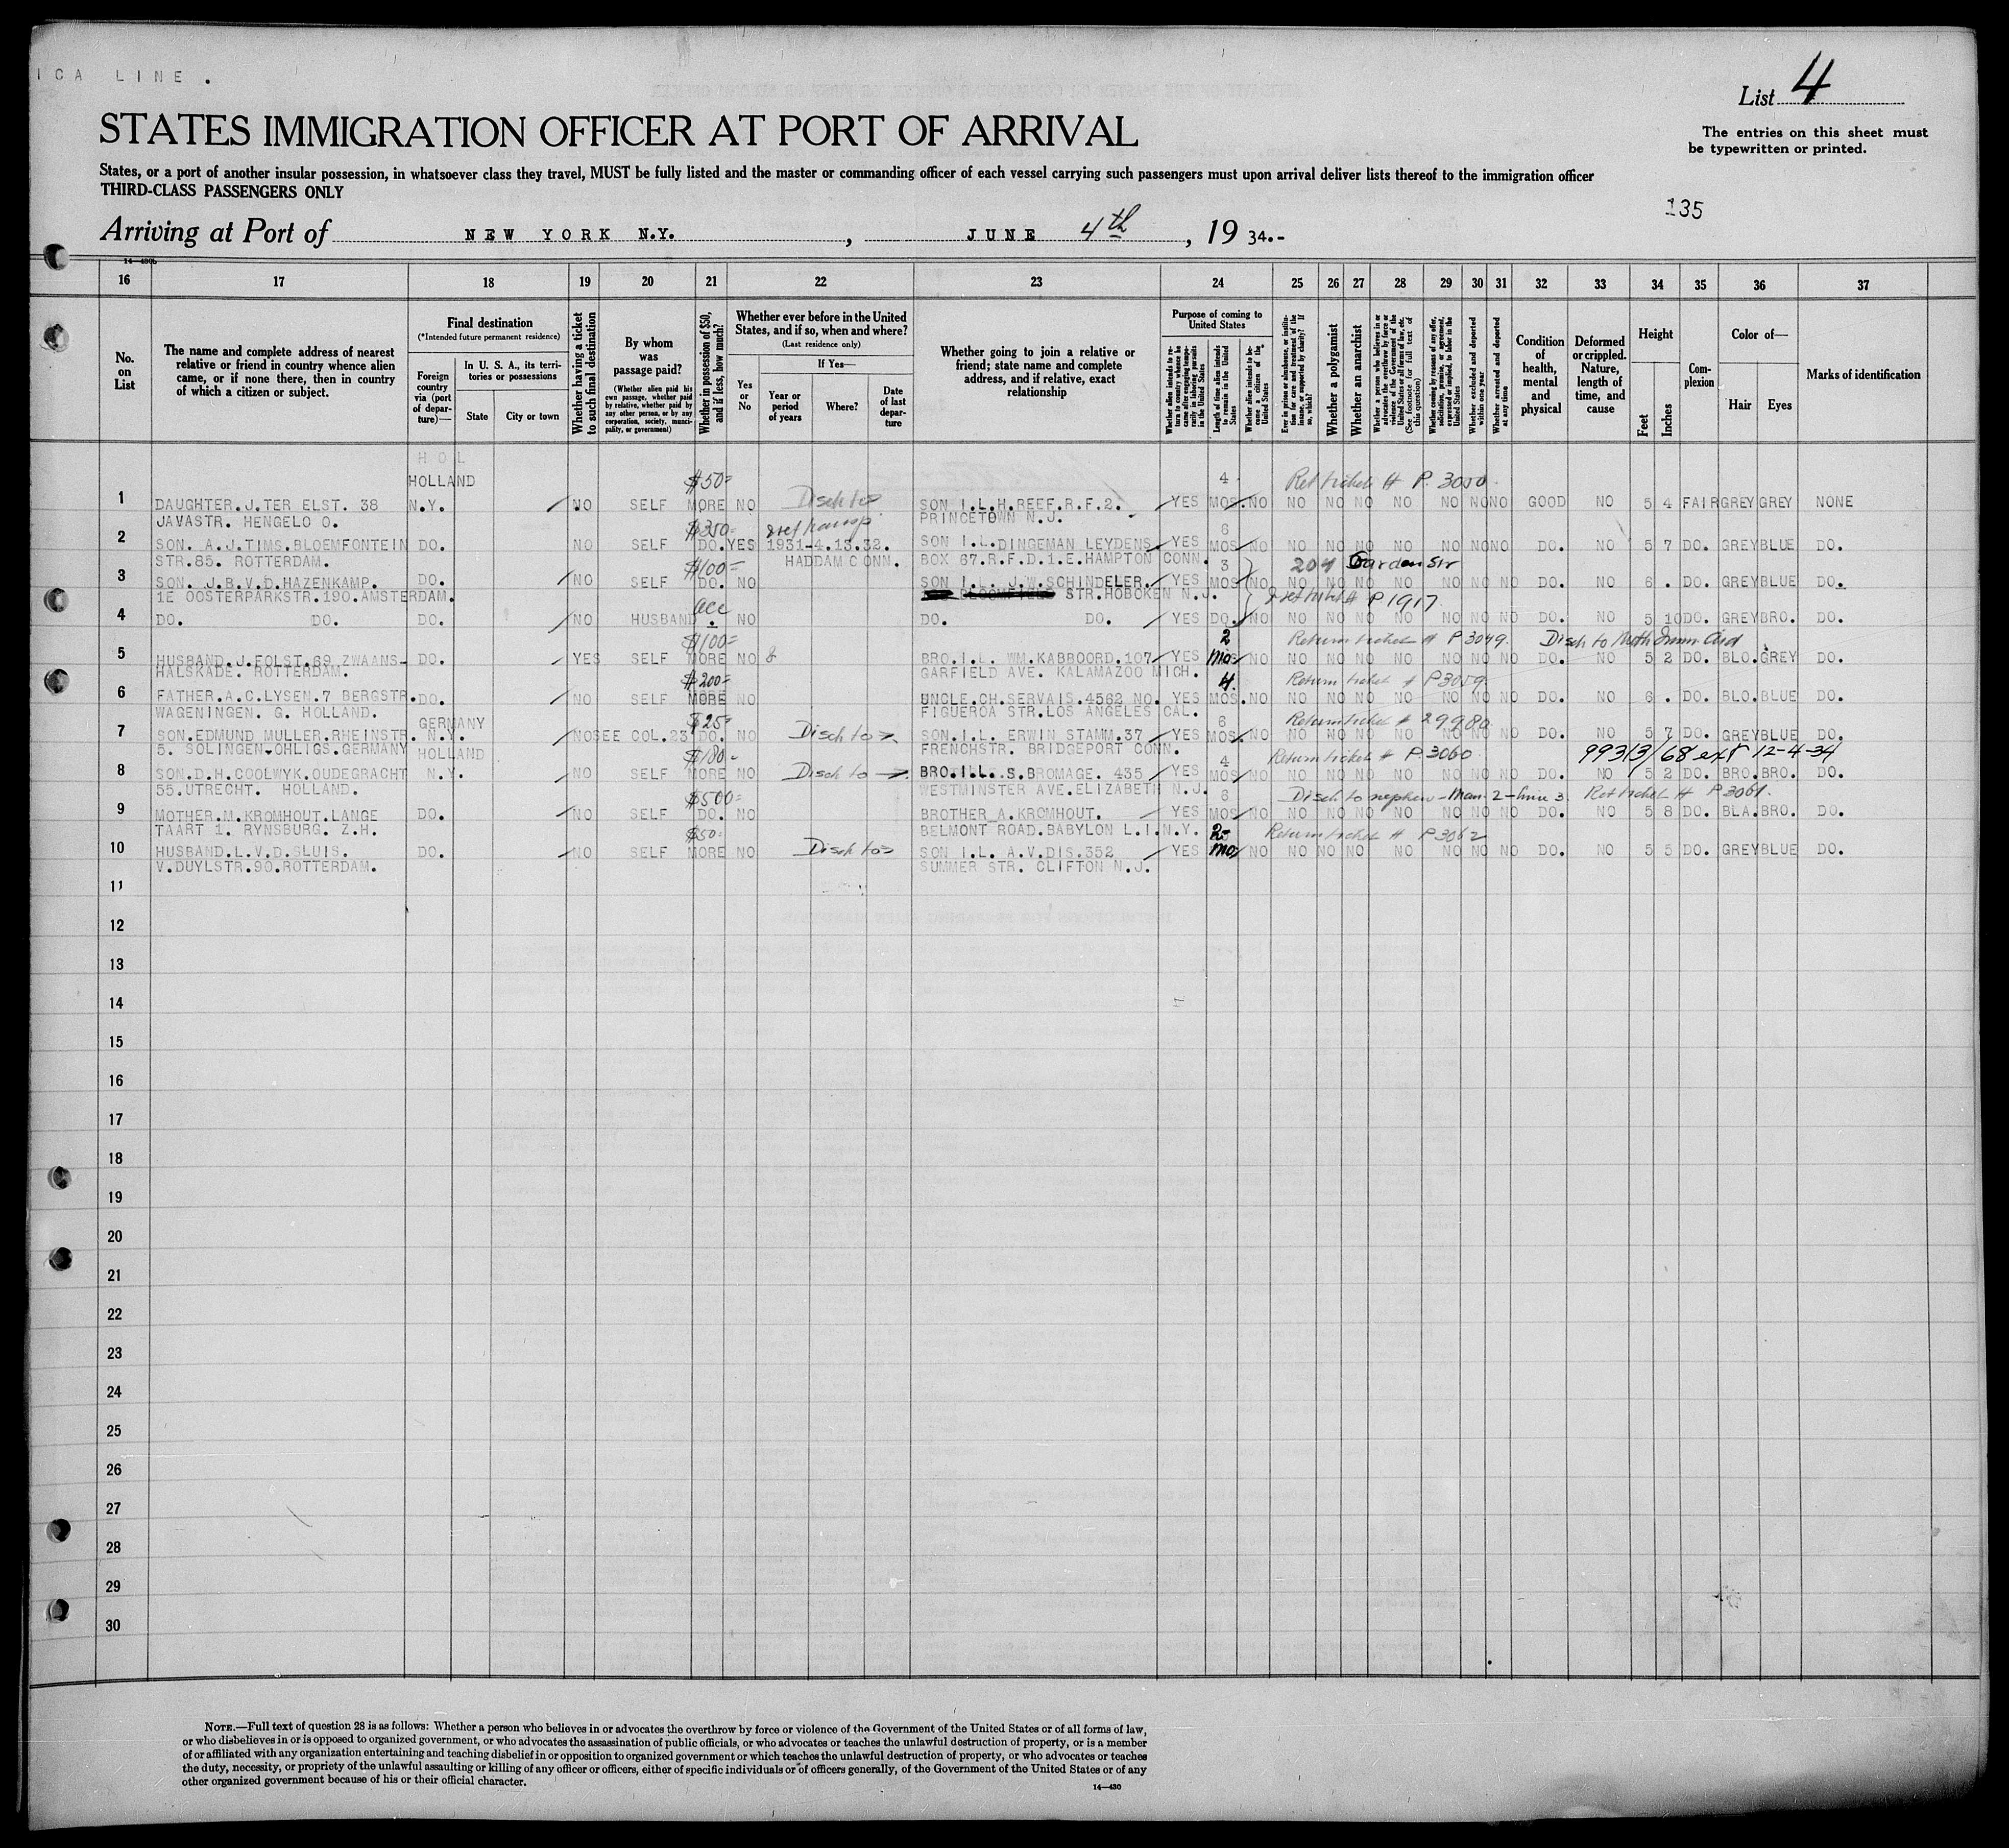 ICA LINE.
List 4
STATES IMMIGRATION OFFICER AT PORT OF ARRIVAL
The entries on this sheet must
be typewritten or printed.
States, or a port of another insular possession, in whatsoever class they travel, MUST be fully listed and the master or commanding officer of each vessel carrying such passengers must upon arrival deliver lists thereof to the immigration officer
THIRD-CLASS PASSENGERS ONLY
135
Arriving at Port of NEW YORK N.Y., JUNE 4th, 19 34.-
16 17 18 19 20 21 22 23 24 25 26 27 28 29 30 31 32 33 34 35 36 37
No. on List
The name and complete address of nearest relative or friend in country whence alien came, or if none there, then in country of which a citizen or subject.
Final destination
(*Intended future permanent residence)
Foreign country via (port of departure)—
In U. S. A., its territories or possessions
State
City or town
Whether having a ticket to such final destination
By whom was passage paid?
(Whether alien paid his own passage, whether paid by relative, whether paid by any other person, or by any corporation, society, municipality, or government)
Whether in possession of $50, and if less, how much?
Whether ever before in the United States, and if so, when and where?
(Last residence only)
Yes or No
If Yes—
Year or period of years
Where?
Date of last departure
Whether going to join a relative or friend; state name and complete address, and if relative, exact relationship
Purpose of coming to United States
Whether alien intends to return to country whence he came after engaging temporarily in laboring pursuits in the United States
Length of time alien intends to remain in the United States
Whether alien intends to become a citizen of the United States
Ever in prison or almshouse, or institution for care and treatment of the insane, or supported by charity? If so, which?
Whether a polygamist
Whether an anarchist
Whether a person who believes in or advocates the overthrow by force or violence of the Government of the United States or all forms of law, etc. (See footnote for full text of this question)
Whether coming by reasons of any offer, solicitation, promise, or agreement, expressed or implied, to labor in the United States
Whether excluded and deported within one year
Whether arrested and deported at any time
Condition of health, mental and physical
Deformed or crippled. Nature, length of time, and cause
Height
Feet
Inches
Complexion
Color of—
Hair
Eyes
Marks of identification
HOL
HOLLAND $50= 4 Ret ticket # P. 3050
1 DAUGHTER.J.TER ELST. 38 N.Y. NO SELF MORE NO Disch to SON I.L.H.REEF.R.F.2. YES MOS. NO NO NO NO NO NO NO NO GOOD NO 5 4 FAIR GREY GREY NONE
JAVASTR. HENGELO O. $350= PRINCETOWN N.J. 6
2 SON. A.J.TIMS.BLOEMFONTEIN DO. NO SELF DO. YES 1931-4.13.32. SON I.L.DINGEMAN LEYDENS. YES MOS NO NO NO NO NO NO NO NO DO. NO 5 7 DO. GREY BLUE DO.
STR.85. ROTTERDAM. $100= HADDAM CONN. BOX 67.R.F.D.1.E.HAMPTON CONN. 3 204 Garden Str
3 SON. J.B.V.D.HAZENKAMP. DO. NO SELF DO. NO SON I.L. J.W.SCHINDELER. YES MOS NO NO NO NO NO NO NO NO DO. NO 6 . DO. GREY BLUE DO.
1E OOSTERPARKSTR.190.AMSTERDAM. acc BLOOMFIELD STR.HOBOKEN N.J. P1917
4 DO. DO. DO. NO HUSBAND . NO DO. DO. YES DO. NO NO NO NO NO NO NO NO DO. NO 5 10 DO. GREY BRO. DO.
$100= 2 Return ticket # P3049. Disch to
5 HUSBAND.J.FOLST.69.ZWAANS- DO. YES SELF MORE NO BRO.I.L. WM.KABBOORD.107 YES Mos NO NO NO NO NO NO NO NO DO. NO 5 2 DO. BLO. GREY DO.
HALSKADE. ROTTERDAM. $200= GARFIELD AVE. KALAMAZOO MICH. 4. Return ticket # P3059
6 FATHER.A.C.LYSEN.7 BERGSTR. DO. NO SELF MORE NO UNCLE.CH.SERVAIS.4562 NO. YES MOS. NO NO NO NO NO NO NO NO DO. NO 6 . DO. BLO. BLUE DO.
WAGENINGEN. G. HOLLAND. GERMANY $25= FIGUEROA STR.LOS ANGELES CAL. 6 Return ticket # 29980
7 SON.EDMUND MULLER.RHEINSTR. N.Y. NO SEE COL.23 DO. NO Disch to SON.I.L. ERWIN STAMM.37 YES MOS. NO NO NO NO NO NO NO NO DO. NO 5 7 DO. GREY BLUE DO.
5. SOLINGEN-OHLIGS.GERMANY HOLLAND $180- FRENCHSTR. BRIDGEPORT CONN. 4 Return ticket # P.3060 99313/68 ext 12-4-34
8 SON.D.H.COOLWYK.OUDEGRACHT N.Y. NO SELF MORE NO Disch to BRO.I.L. S.BROMAGE. 435 YES MOS NO NO NO NO NO NO NO NO DO. NO 5 2 DO. BRO. BRO. DO.
55.UTRECHT. HOLLAND. $500= WESTMINSTER AVE.ELIZABETH N.J. 6 Disch to nephew - Man. 2 - line 3. Ret ticket # P3061.
9 MOTHER.M.KROMHOUT.LANGE DO. NO SELF DO. NO BROTHER A.KROMHOUT. YES MOS NO NO NO NO NO NO NO NO DO. NO 5 8 DO. BLA. BRO. DO.
TAART 1. RYNSBURG. Z.H. $50= BELMONT ROAD.BABYLON L.I.N.Y. 2 Return ticket # P3062
10 HUSBAND.L.V.D.SLUIS. DO. NO SELF MORE NO Disch to SON I.L. A.V.DIS.352 YES Mo NO NO NO NO NO NO NO NO DO. NO 5 5 DO. GREY BLUE DO.
V.DUYLSTR.90.ROTTERDAM. SUMMER STR. CLIFTON N.J.
11
12
13
14
15
16
17
18
19
20
21
22
23
24
25
26
27
28
29
30
NOTE.—Full text of question 28 is as follows: Whether a person who believes in or advocates the overthrow by force or violence of the Government of the United States or of all forms of law,
or who disbelieves in or is opposed to organized government, or who advocates the assassination of public officials, or who advocates or teaches the unlawful destruction of property, or is a member
of or affiliated with any organization entertaining and teaching disbelief in or opposition to organized government or which teaches the unlawful destruction of property, or who advocates or teaches
the duty, necessity, or propriety of the unlawful assaulting or killing of any officer or officers, either of specific individuals or of officers generally, of the Government of the United States or of any
other organized government because of his or their official character.
14—430